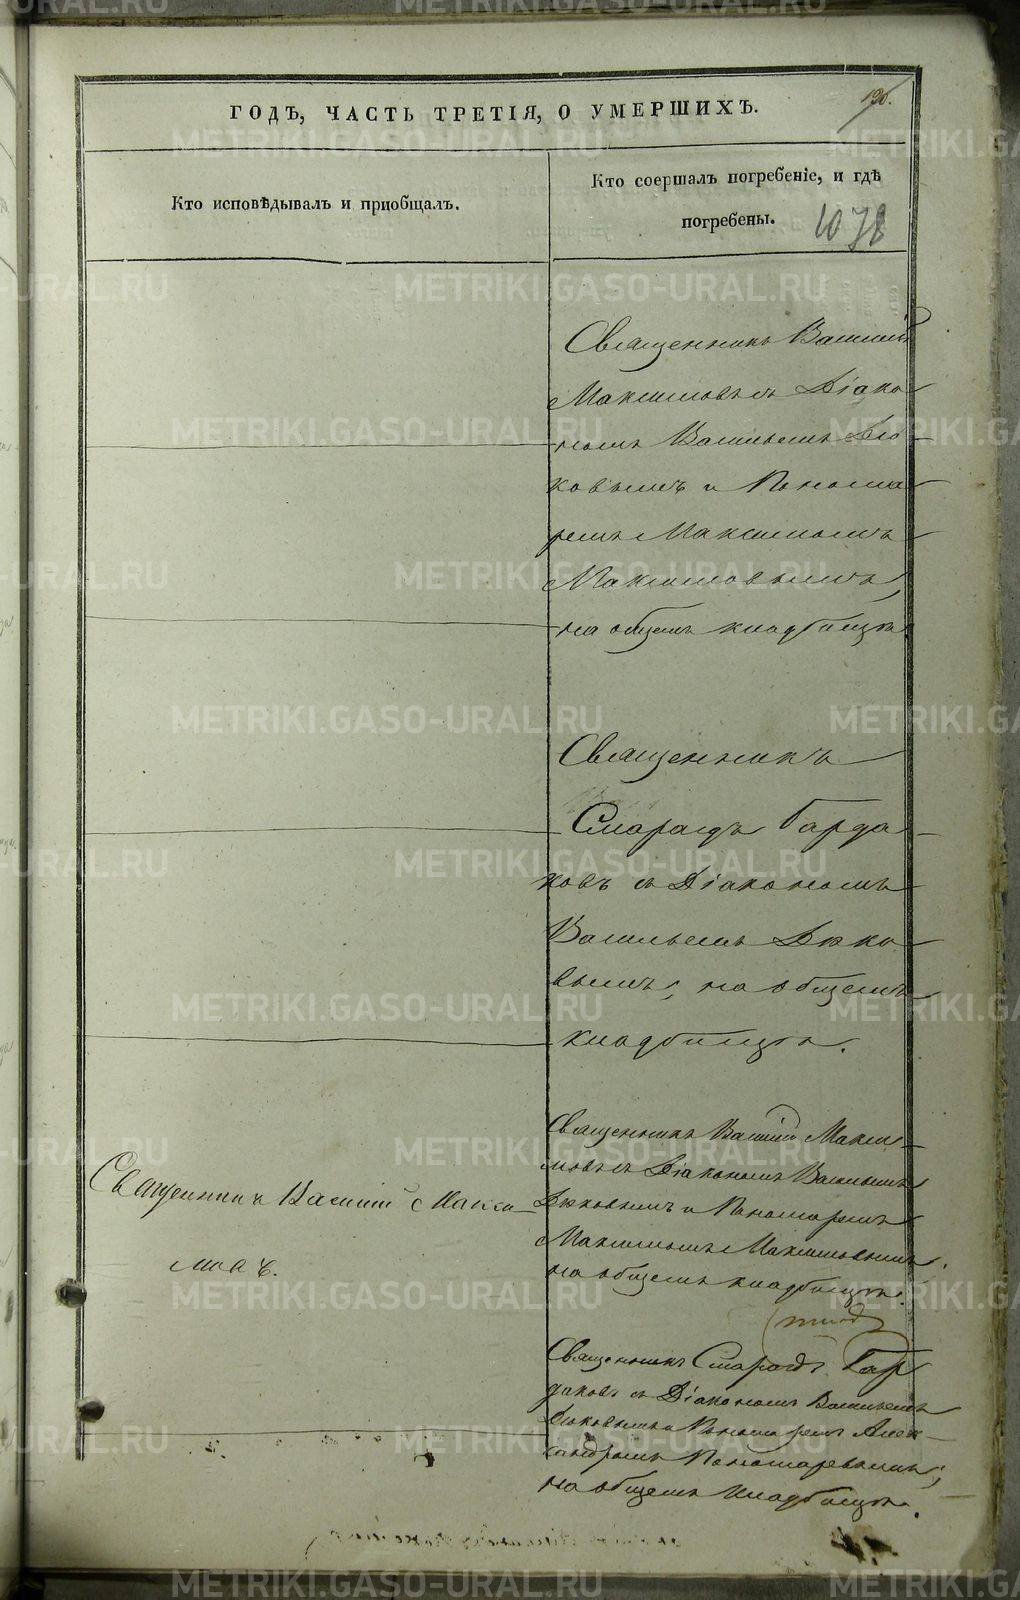 120.
ГОДЪ, ЧАСТЬ ТРЕТІЯ, О УМЕРШИХЪ.
Кто исповѣдывалъ и пріобщалъ.
Кто соершалъ погребеніе, и гдѣ
погребены.
1078
Священникъ Василій
Максимовъ съ Діако
номъ Васильемъ Дю
ковымъ и Понома
ремъ Максимомъ
Максимовымъ,
на общемъ кладбищѣ.
Священникъ
Смарагдъ Гарда
ковъ съ Діакономъ
Васильемъ Дюко
вымъ, на общемъ
кладбищѣ.
Священникъ Василій Макси
мовъ съ Діакономъ Васильемъ
Дюковымъ и Пономаремъ
Максимомъ Максимовымъ
на общемъ кладбищѣ.
Священникъ Василій Макси
мовъ.
Священникъ Смарагдъ Гар
даковъ съ Діакономъ Васильемъ
Дюковымъ и Пономаремъ Алек
сандромъ Пономаревымъ,
на общемъ кладбищѣ.
METRIKI.GASO-URAL.RU